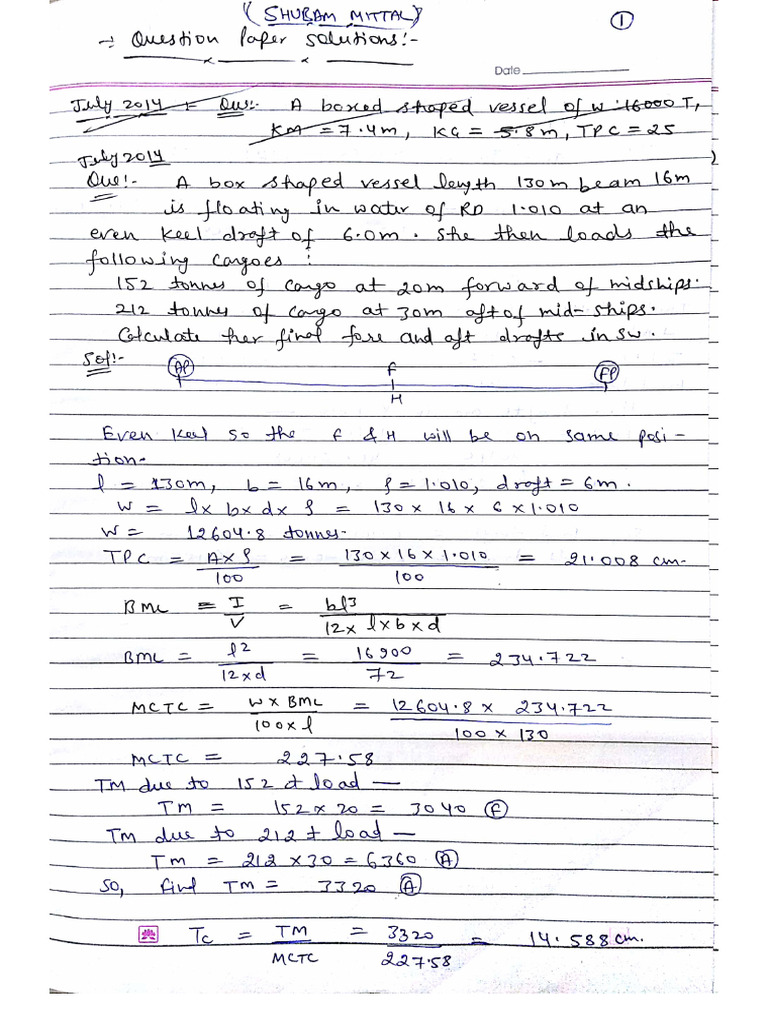 (SHUBAM MITTAL)
①
→ Question Paper Solutions:-
Date
July 2014 = Que:- A boxed shaped vessel of W. 16000 T,
KM = 7.4m, KG = 5.8m, TPC = 25
July 2014
)
Que:- A box shaped vessel length 130m beam 16m
is floating in water of RD 1.010 at an
even keel draft of 6.0m. She then loads the
following cargoes :
152 tonnes of cargo at 20m forward of midships.
212 tonnes of cargo at 30m aft of mid-ships.
Calculate her final fore and aft drafts in SW.
Sol:-
AP F FP
H
Even keel so the F & H will be on same posi-
tion-
l = 130m, b = 16m, ρ = 1.010, draft = 6m.
W = l x b x d x ρ = 130 x 16 x 6 x 1.010
W = 12604.8 tonnes-
TPC = A x ρ / 100 = 130 x 16 x 1.010 / 100 = 21.008 cm-
BML = I / V = bl³ / 12 x l x b x d
BML = l² / 12 x d = 16900 / 72 = 234.722
MCTC = W x BML / 100 x l = 12604.8 x 234.722 / 100 x 130
MCTC = 227.58
TM due to 152 t load —
TM = 152 x 20 = 3040 Ⓕ
TM due to 212 t load —
TM = 212 x 30 = 6360 Ⓐ
So, final TM = 3320 Ⓐ
Tc = TM / MCTC = 3320 / 227.58 = 14.588 cm.